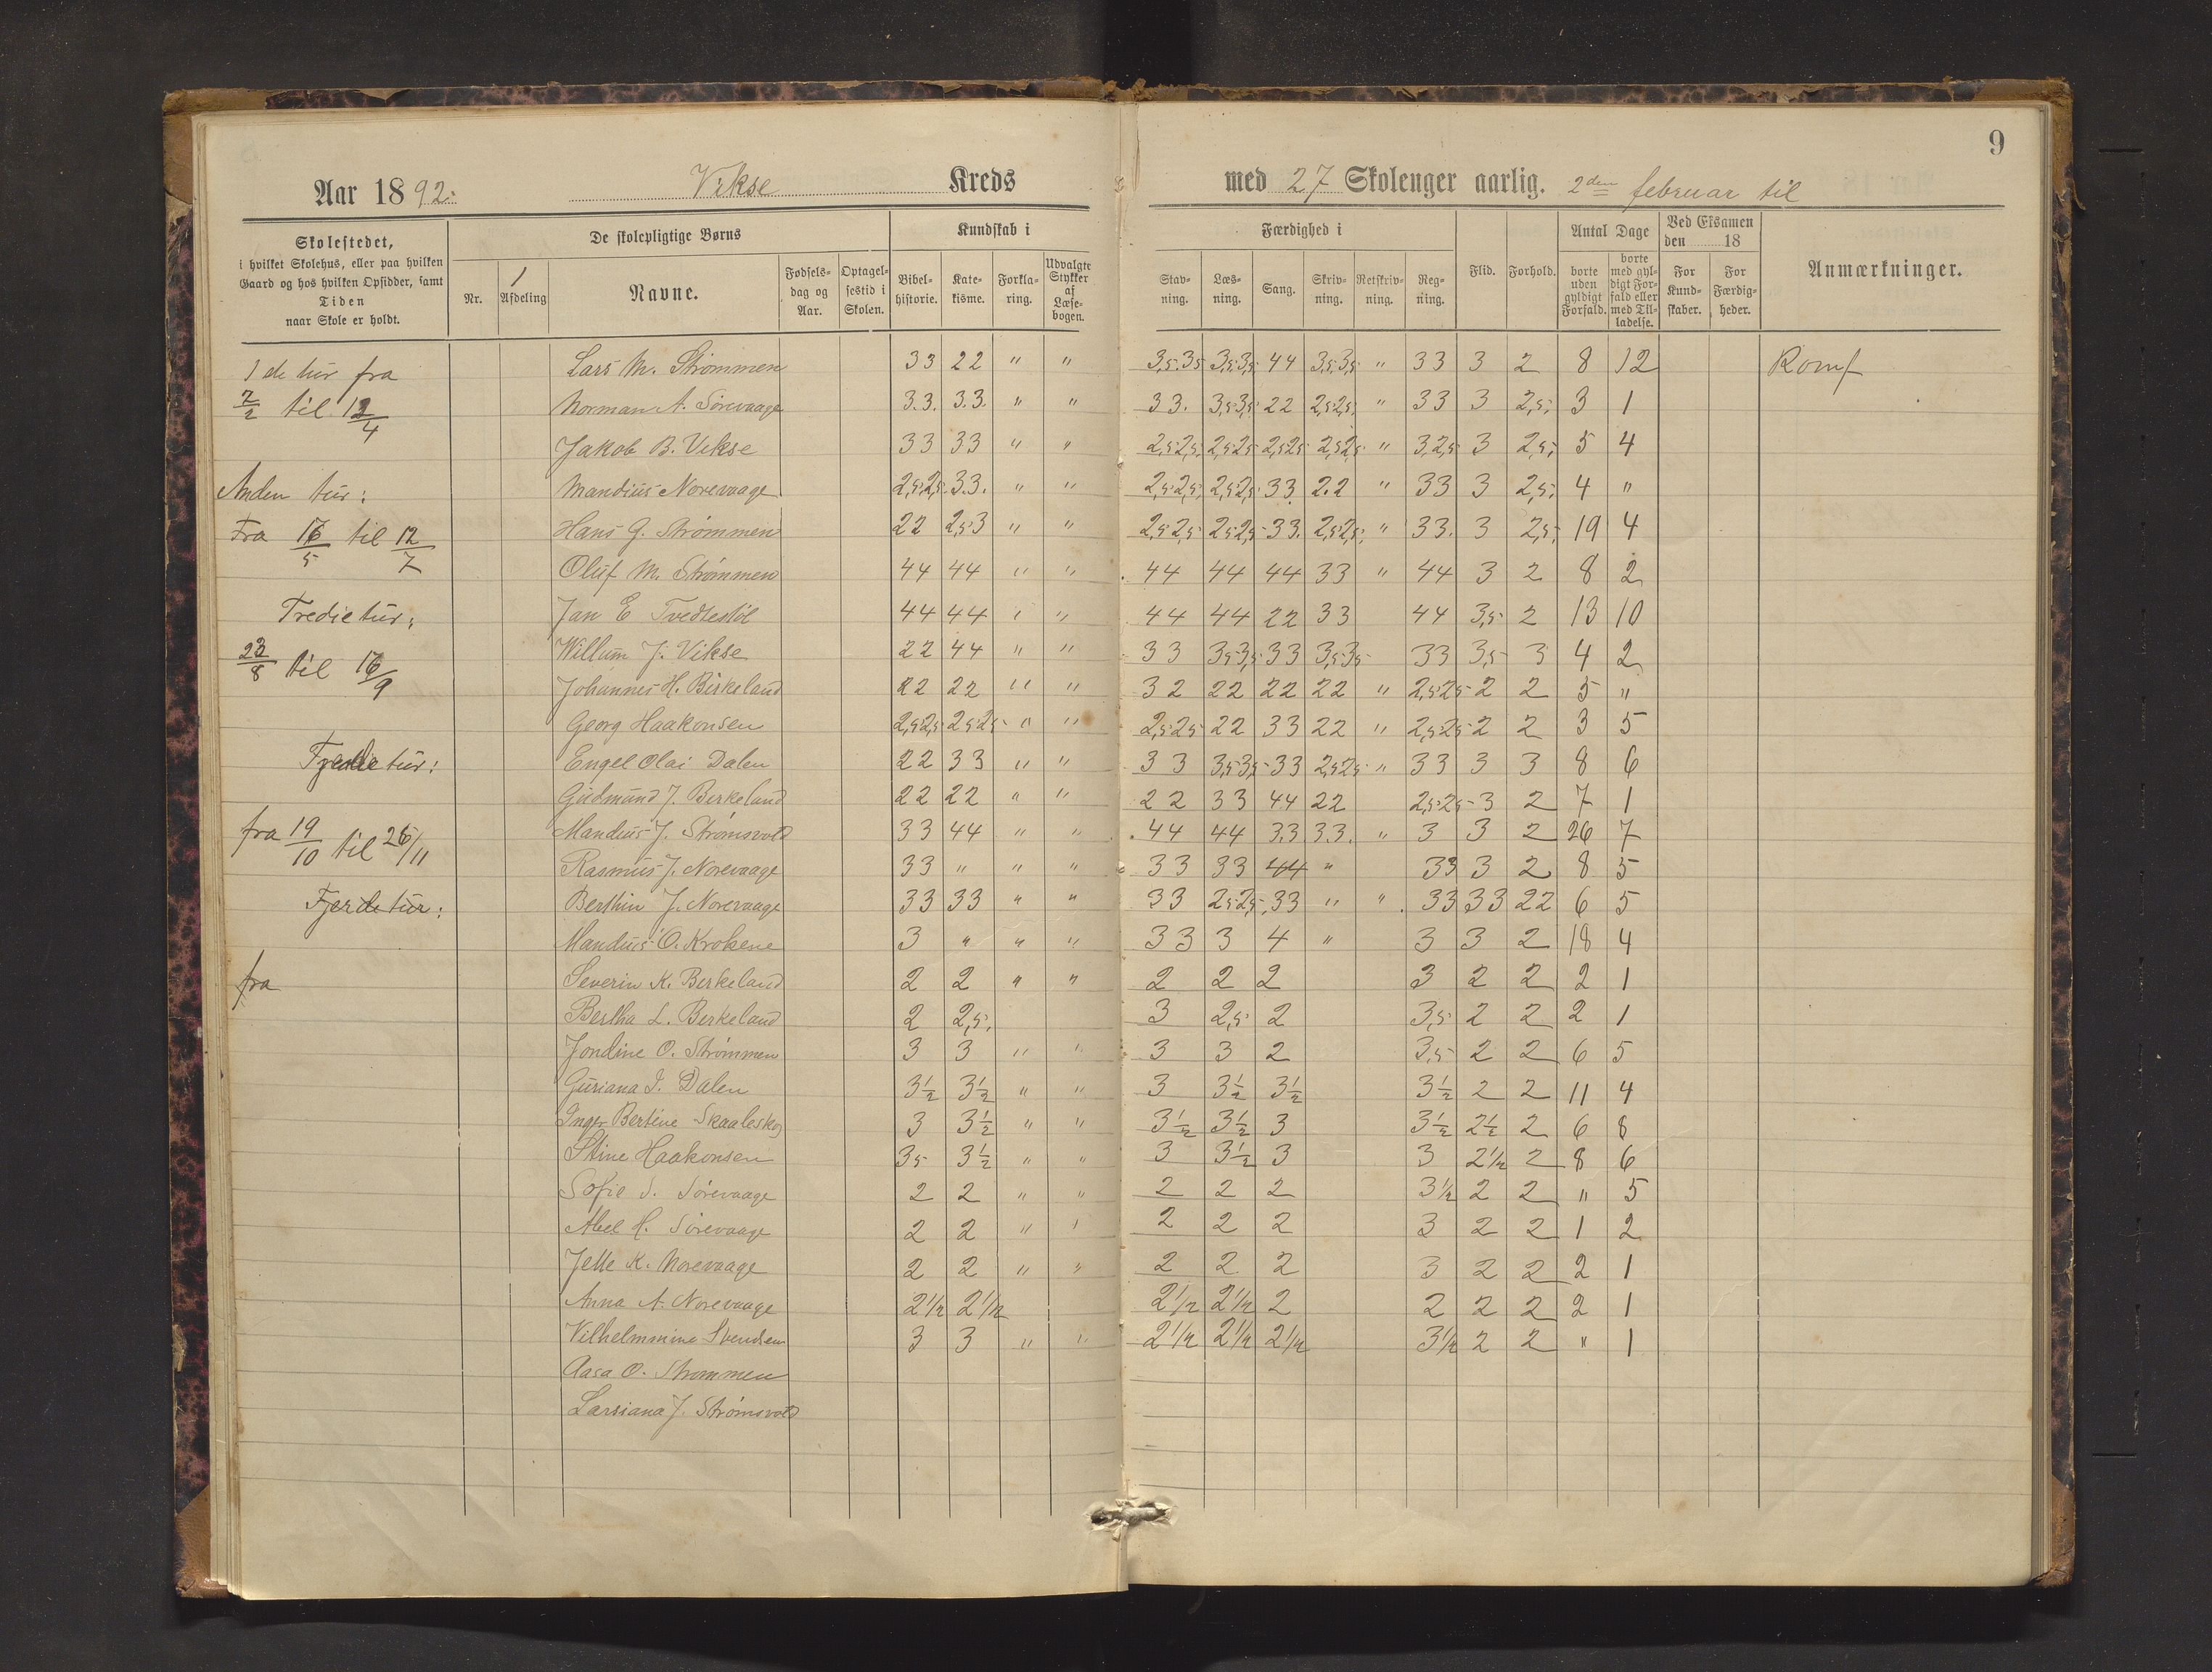 9
Aar 1892. Vikse Kreds med 27 Skolenger aarlig. 2den februar til
Skolestedet, i hvilket Skolehus, eller paa hvilken Gaard og hos hvilken Opsidder, samt Tiden naar Skole er holdt.
De skolepligtige Børns
Nr. 1 Afdeling Navne. Fødsels-dag og Aar. Optagel-sestid i Skolen.
Kundskab i
Bibel-historie. Kate-kisme. Forkla-ring. Udvalgte Stykker af Læse-bogen.
Færdighed i
Stav-ning. Læs-ning. Sang. Skriv-ning. Retskriv-ning. Reg-ning. Flid. Forhold.
Antal Dage
borte uden gyldigt Forfald. borte med gyl-digt For-fald eller med Til-ladelse.
Ved Eksamen den 18
For Kund-skaber. For Færdig-heder.
Anmærkninger.
1 de tur fra
2/2 til 12/4
Anden tur:
Fra 16/5 til 12/7
Tredie tur:
23/8 til 16/9
tur:
fra 19/10 til 26/11
Fjerde tur:
fra
Lars M. Strømmen 33 22 " " 3,5.35 3,5:3,5 44 3,5:3,5 " 33 3 2 8 12
Norman A. Sørevaage 3.3. 3.3. " " 33. 3,5:3,5 22 2,5:2,5 " 33 3 2,5 3 1
Jakob B. Vikse 33 33 " " 2,5:2,5 2,5:25 2,5:25 2,5:2,5 " 3,2,5 3 2,5 5 4
Mandius Norevaage 2,5:2,5 3.3. " " 2,5:2,5 2,5:2,5 33 2.2 " 33 3 2,5 4 "
Hans G. Strømmen 22 2,5:3 " " 2,5:2,5 25:2,5 33. 2,5:2,5 " 33. 3 2,5 19 4
Oluf M. Strømmen 44 44 " " 44 44 44 33 " 44 3 2 8 2
Jan E Tvedtestøl 44 44 " " 44 44 22 33 44 3,5 2 13 10
Willum J. Vikse 22 44 " " 33 35:3,5 33 3,5:35 33 3,5 3 4 2
Johannes H. Birkeland 22 22 " " 32 22 22 22 " 2,5:25 2 2 5 "
Georg Haakonsen 2,5:2,5 25:25 " " 2,5:25 22 33 22 " 2,5:25 2 2 3 5
Engel Olai Dalen 22 33 " " 33 3,5:3,5 33 2,5:25 " 33 3 3 8 6
Gudmund J. Berkeland 22 22 " " 22 33 44 22 2,5:25 3 2 7 1
Mandius J. Strømsvold 33 44 " " 44 44 3.3 3.3. " 3 3 2 26 7
Rasmus J. Norevaage 33 " " " 33 33 44 " 33 3 2 8 5
Berthin J. Norevaage 33 33 " " 33 25:25 33 " " 33 33 22 6 5
Mandius O. Krokene 3 " " " 33 3 4 " 3 3 2 18 4
Severin K. Berkeland 2 2 " " 2 2 2 3 2 2 2 1
Bertha L. Berkeland 2 2,5. 3 2,5 2 3,5 2 2 2 1
Jondine O. Strømmen 3 3 " " 3 3 2 3,5 2 2 6 5
Guriana I. Dalen 3½ 3½ " " 3 3½ 3½ 3½ 2 2 11 4
Inger Bertine Skaaleskog 3 3½ " " 3½ 3½ 3 3½ 2½ 2 6 8
Stine Haakonsen 35 3½ " " 3 3½ 3 3 2½ 2 8 6
Sofie S. Sørevaage 2 2 " " 2 2 2 3½ 2 2 " 5
Abel H. Sørevaage 2 2 " " 2 2 2 3 2 2 1 2
Jette K. Norevaage 2 2 " " 2 2 2 3 2 2 2 1
Anna A. Norevaage 2½ 2½ 2½ 2½ 2 2 2 2 2 1
Vilhelmmine Svendsen 3 3 " " 2½ 2½ 2½ 3½ 2 2 " 1
Aasa O. Strømmen
Larsiana J. Strømsvold